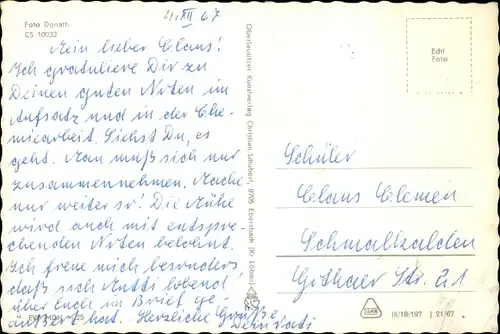 Foto Donath
CS 10033
4. XII 67
Mein lieber Claus!
Ich gratuliere Dir zu
Deinen guten Noten im
Aufsatz und in der Che-
miearbeit. Siehst Du, es
geht. Man muß sich nur
zusammennehmen. Mache
nur weiter so! Die Mühe
wird auch mit entspre-
chenden Noten belohnt.
Ich freue mich besonders
daß sich Mutti lobend
über Euch im Brief ge-
äußert hat. Herzliche Grüße
Dein Vati
Oberlausitzer Kunstverlag Christian Schubert, 8705 Ebersbach (Kr. Löbau)
Echt
Foto
Schüler
Claus Clemen
Schmalkalden
Gothaer Str. 21
III/18/197 21/67